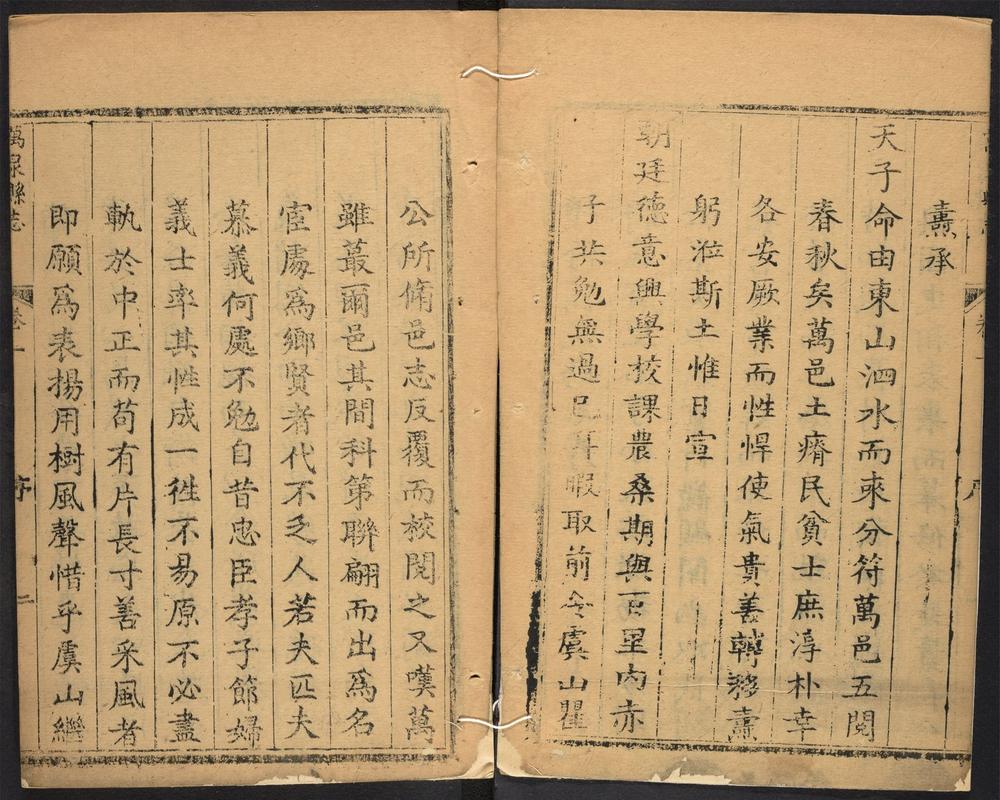 燾承
天子命由東山泗水而來分符萬邑五閱
春秋矣萬邑土瘠民貧士庶淳朴幸
各安厥業而性悍使氣貴善轉移燾
躬涖斯土惟日宣
朝廷德意興學校課農桑期與百里內赤
子共勉無過已耳暇取前令虞山瞿
公所脩邑志反覆而校閱之又嘆萬
雖蕞爾邑其間科第聯翩而出爲名
宦處爲鄉賢者代不乏人若夫匹夫
慕義何處不勉自昔忠臣孝子節婦
義士率其性成一徃不易原不必盡
軌於中正而苟有片長寸善采風者
即願爲表揚用樹風聲惜乎虞山繼
萬泉縣志
卷一
序
二